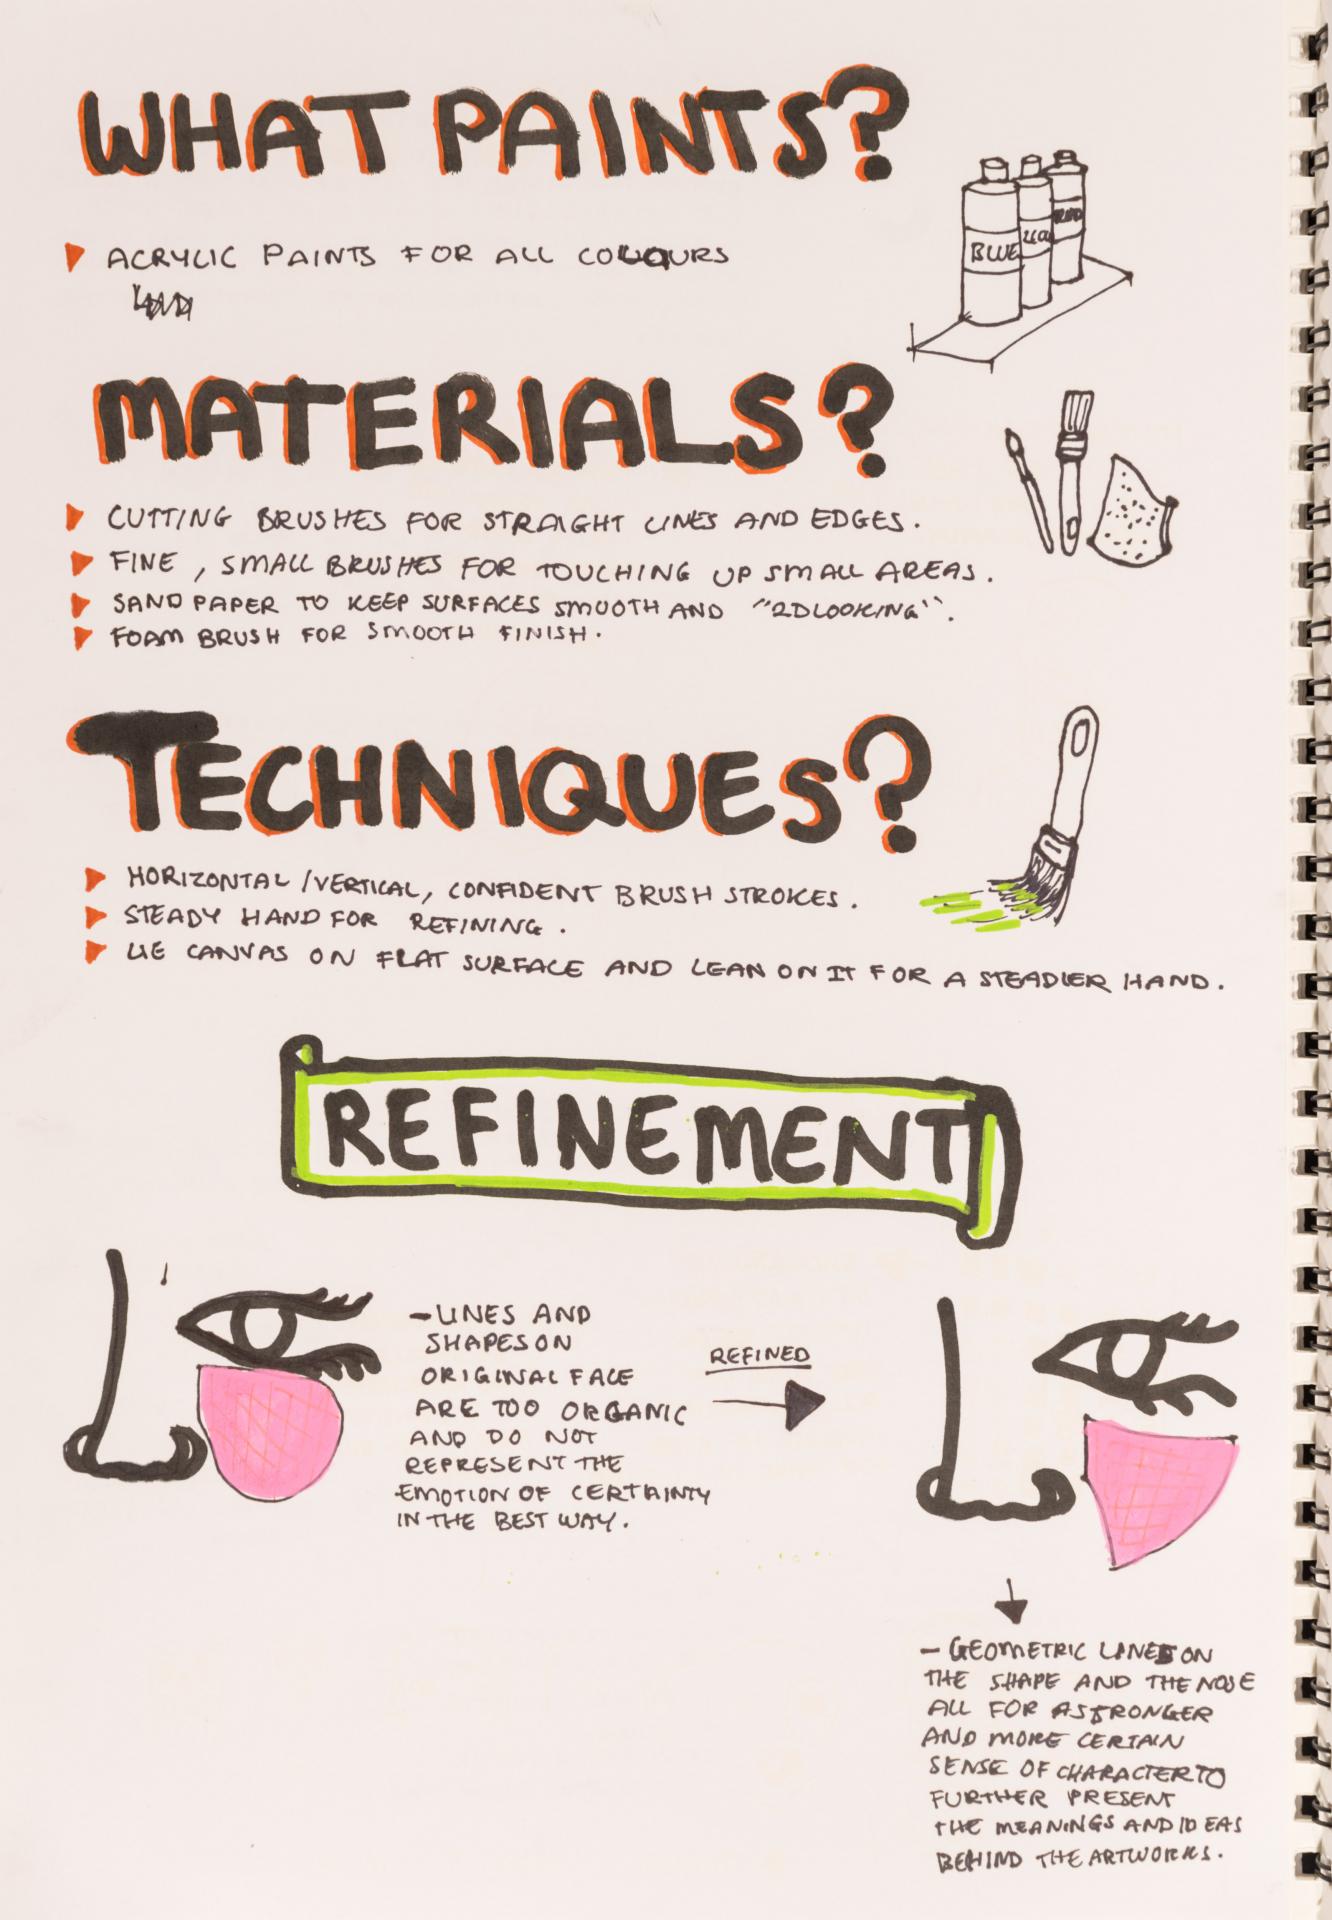 WHAT PAINTS?
ACRYLIC PAINTS FOR ALL COLOURS
BLUE
RED
MATERIALS?
CUTTING BRUSHES FOR STRAIGHT LINES AND EDGES.
FINE, SMALL BRUSHES FOR TOUCHING UP SMALL AREAS.
SAND PAPER TO KEEP SURFACES SMOOTH AND "2D LOOKING".
FOAM BRUSH FOR SMOOTH FINISH.
TECHNIQUES?
HORIZONTAL / VERTICAL, CONFIDENT BRUSH STROKES.
STEADY HAND FOR REFINING.
LIE CANVAS ON FLAT SURFACE AND LEAN ON IT FOR A STEADIER HAND.
REFINEMENT
- LINES AND
SHAPES ON
ORIGINAL FACE
ARE TOO ORGANIC
AND DO NOT
REPRESENT THE
EMOTION OF CERTAINTY
IN THE BEST WAY.
REFINED
- GEOMETRIC LINES ON
THE SHAPE AND THE NOSE
ALL FOR A STRONGER
AND MORE CERTAIN
SENSE OF CHARACTER TO
FURTHER PRESENT
THE MEANINGS AND IDEAS
BEHIND THE ARTWORKS.